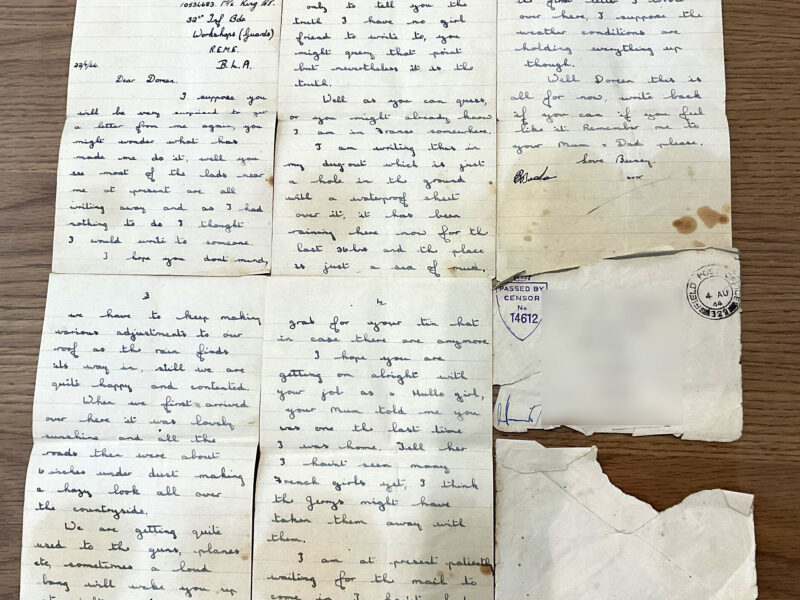 10534683 Pte King BF.
32nd Inf Bde
Workshops (Guards)
R.E.M.E.
B.L.A.
Dear Doreen.
I suppose you
will be very surprised to get
a letter from me again, you
might wonder what has
made me do it, well you
see most of the lads near
me at present are all
writing away and as I had
nothing to do I thought
I would write to someone.
I hope you dont mind,
only to tell you the
truth I have no girl
friend to write to, you
might query that point
but nevertheless it is the
truth.
Well as you can guess,
or you might already know
I am in France somewhere.
I am writing this in
my dug-out which is just
a hole in the ground
with a waterproof sheet
over it, it has been
raining here now for the
last 36 hrs and the place
is just a sea of mud,
3
we have to keep making
various adjustments to our
roof as the rain finds
its way in, still we are
quite happy and contented.
When we first arrived
over here it was lovely
sunshine and all the
roads then were about
6 inches under dust making
a hazy look all over
the countryside.
We are getting quite
used to the guns, planes
etc, sometimes a loud
bang will wake you up
4
grab for your tin hat
in case there are anymore
I hope you are
getting on alright with
your job as a Hullo girl,
your Mum told me you
was one the last time
I was home. Tell her
I haint seen many
French girls yet, I think
the Jerrys might have
taken them away with
them.
I am at present patiently
waiting for the mail to
come in I
the first letter I wrote
over here, I suppose the
weather conditions are
holding everything up
though.
Well Doreen this is
all for now, write back
if you can if you feel
like it. Remember me to
your Mum & Dad please.
Love
xxx
PASSED BY
CENSOR
No
14612
FIELD POST OFFICE
4 AU
44
329